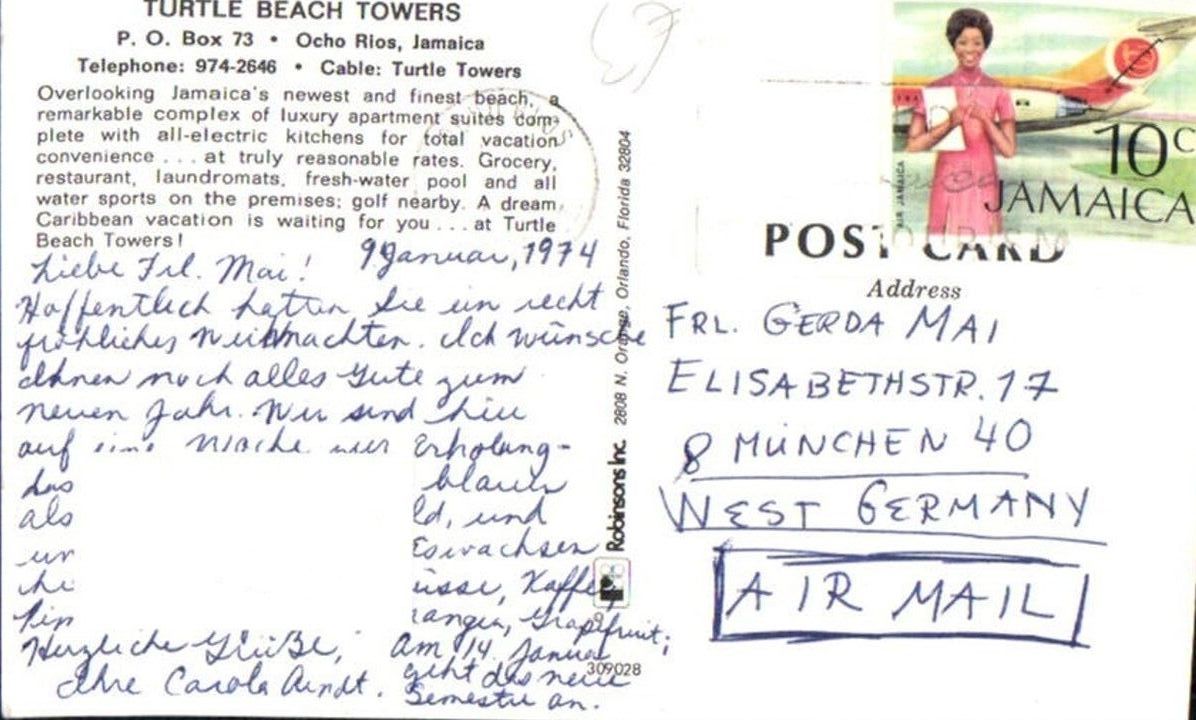 TURTLE BEACH TOWERS
P. O. Box 73 • Ocho Rios, Jamaica
Telephone: 974-2646 • Cable: Turtle Towers
Overlooking Jamaica's newest and finest beach, a
remarkable complex of luxury apartment suites com-
plete with all-electric kitchens for total vacation
convenience . . . at truly reasonable rates. Grocery,
restaurant, laundromats, fresh-water pool and all
water sports on the premises; golf nearby. A dream
Caribbean vacation is waiting for you . . . at Turtle
Beach Towers!
9 Januar, 1974
Liebe Frl. Mai!
Hoffentlich hatten Sie ein recht
fröhliches Weihnachten. Ich wünsche
Ihnen noch alles Gute zum
neuen Jahr. Wir sind hier
auf eine Woche zur Erholung-
das blauer
als und
Es wachsen
Kaffee,
Grapefruit;
Herzliche Grüße,
Ihre Carola Arndt.
Am 14. Januar
geht das neue
Semester an.
Robinsons Inc. 2808 N. Orange, Orlando, Florida 32804
309028
AIR JAMAICA
10c
JAMAICA
POST CARD
Address
FRL. GERDA MAI
ELISABETHSTR. 17
8 MÜNCHEN 40
WEST GERMANY
AIR MAIL